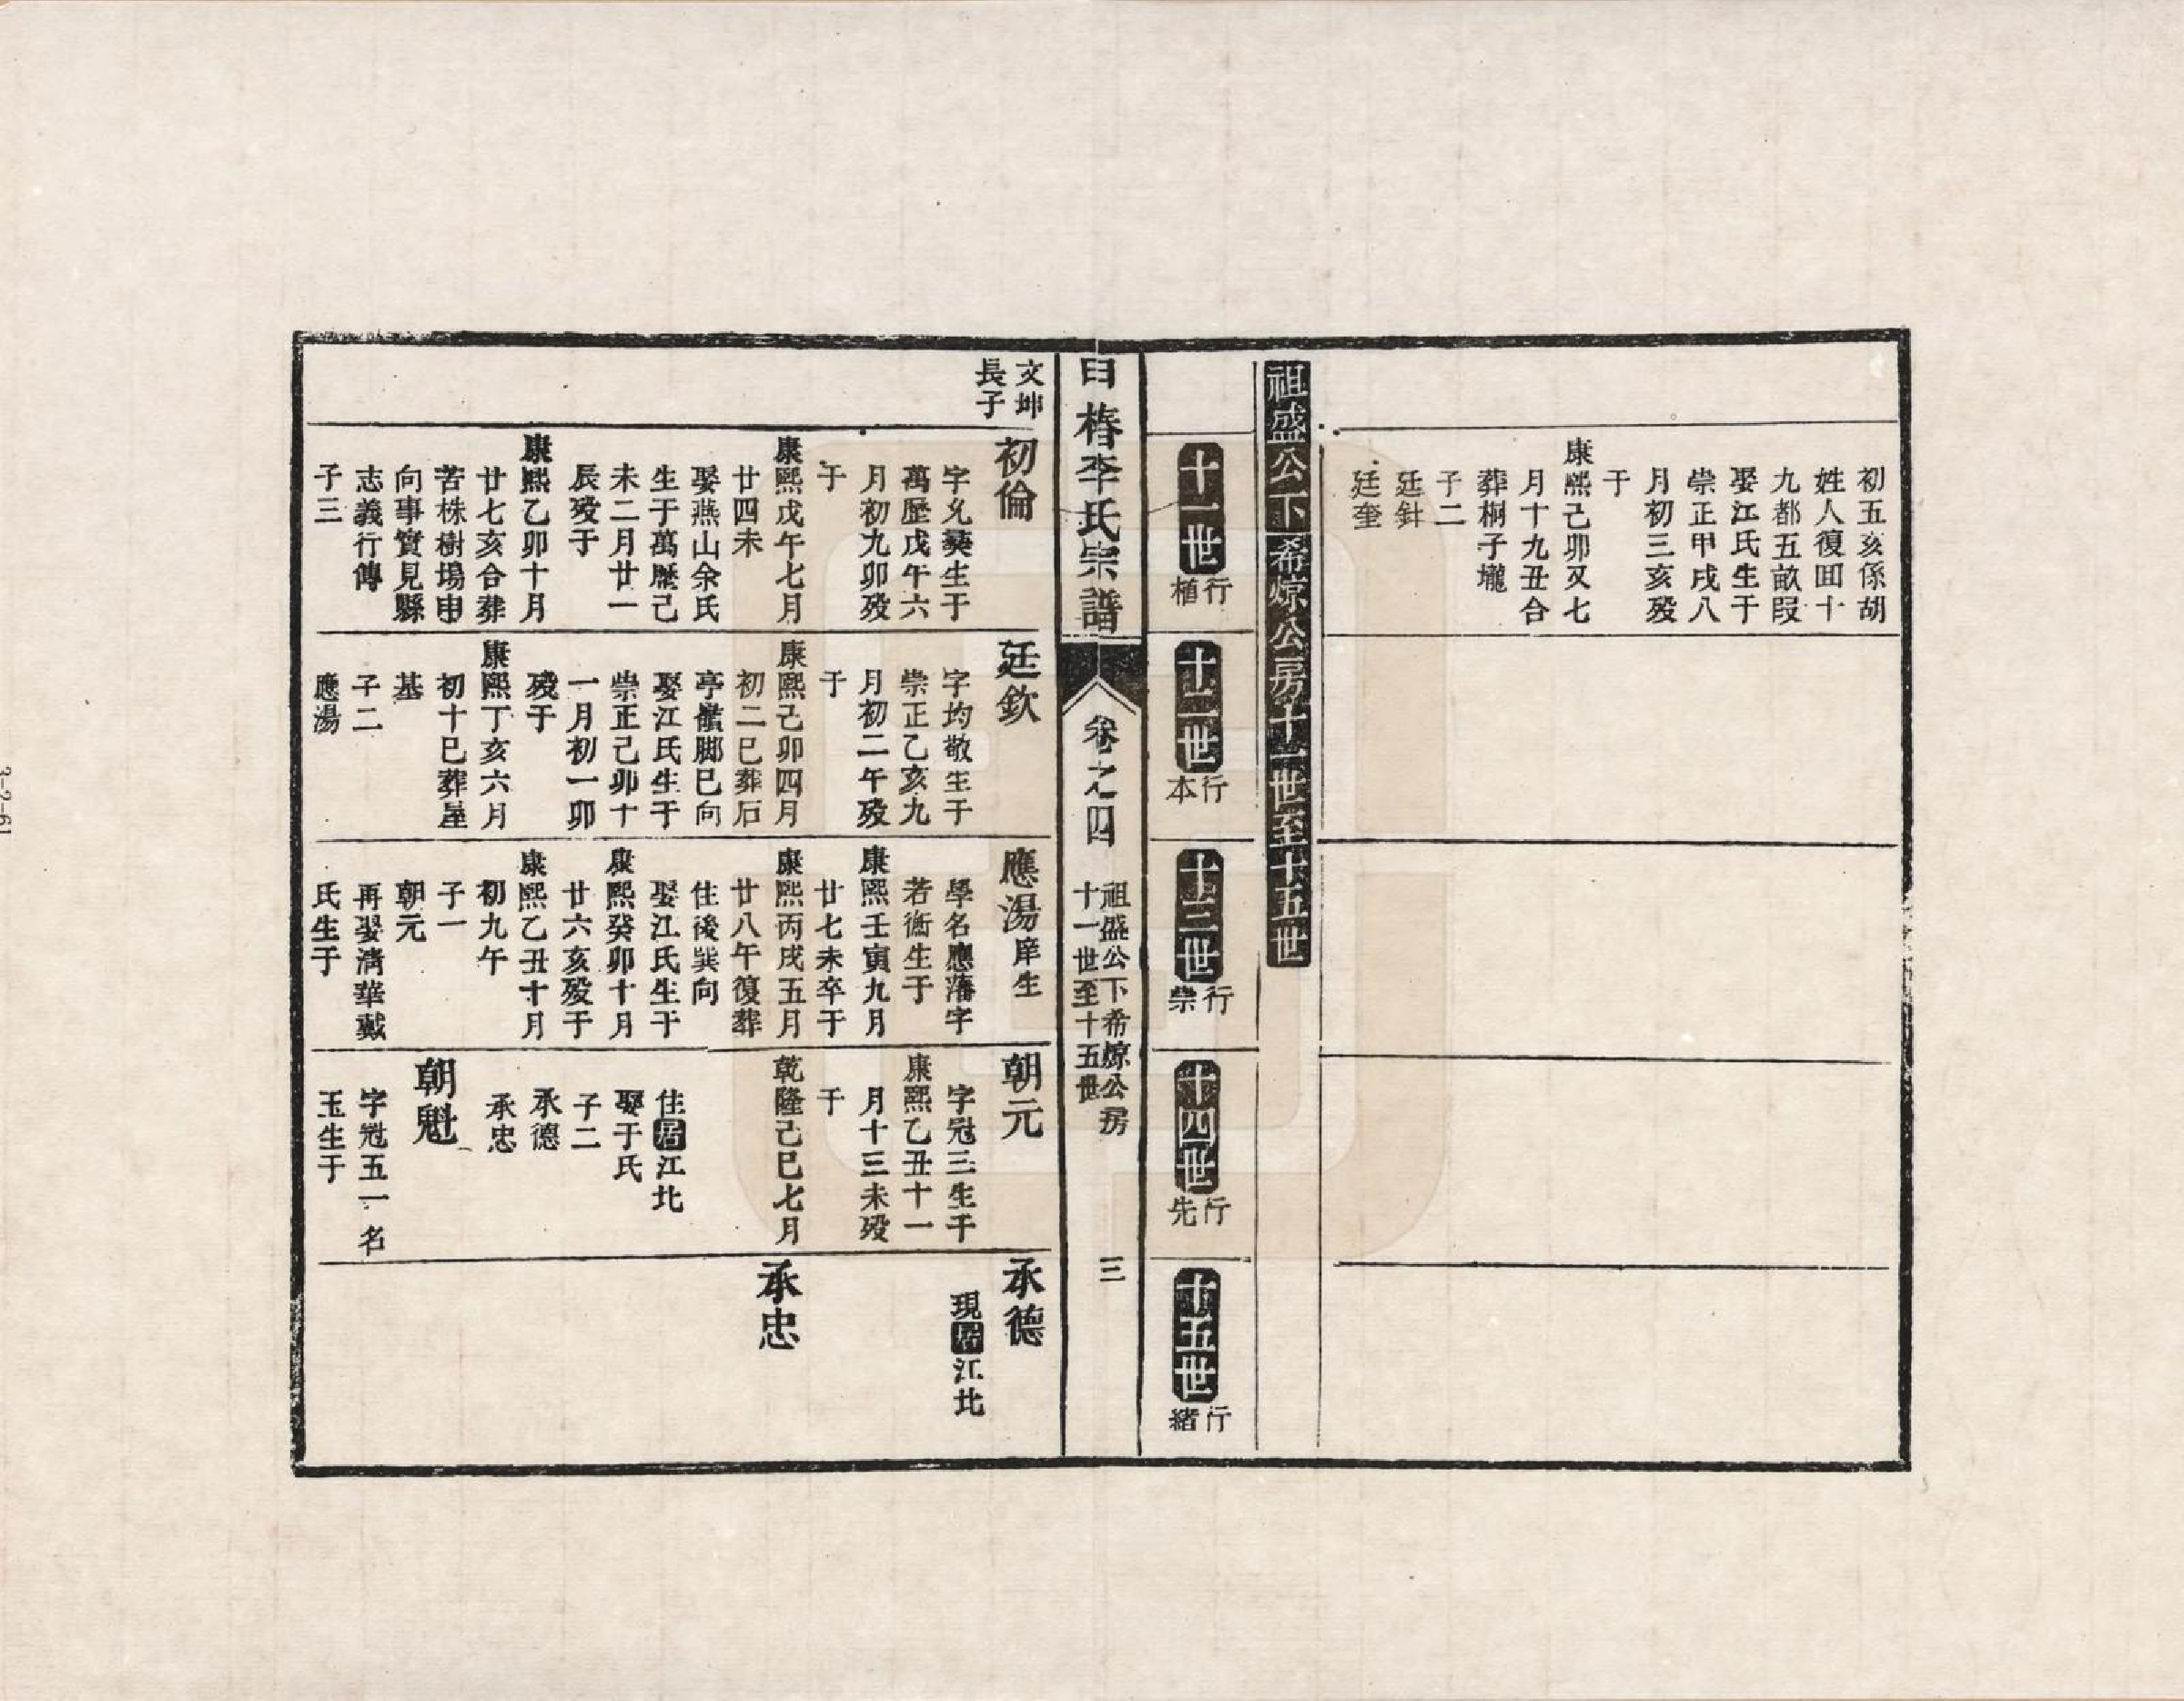 初五亥係胡
姓人復田十
九都五畝叚
娶江氏生于
崇正甲戌八
月初三亥歿
于
康熙己卯又七
月十九丑合
葬桐子壠
子二
廷針
廷奎
祖盛公下希燎公房十一世至十五世
十一世
植行
十二世
本行
十三世
崇行
十四世
先行
十五世
緒行
李氏宗譜
卷之四
祖盛公下希燎公房
十一世至十五世
三
文坤
長子
初倫
字允彝生于
萬歷戊午六
月初九卯歿
于
康熙戊午七月
廿四未
娶燕山余氏
生于萬歷己
未二月廿一
辰歿于
康熙乙卯十月
廿七亥合葬
苦株樹塲申
向事實見縣
志義行傳
子三
廷欽
字均敬生于
崇正乙亥九
月初二午歿
于
康熙己卯四月
初二巳葬石
亭嶺脚巳向
娶江氏生于
崇正己卯十
一月初一卯
歿于
康熙丁亥六月
初十巳葬屋
基
子二
應湯
應湯庠生
學名應藩字
若衡生于
康熙壬寅九月
廿七未卒于
康熙丙戌五月
廿八午復葬
住後巽向
娶江氏生于
康熙癸卯十月
廿六亥歿于
康熙乙丑十月
初九午
子一
朝元
再娶清華戴
氏生于
朝元
字冠三生于
康熙乙丑十一
月十三未歿
于
乾隆己巳七月
住居江北
娶于氏
子二
承德
承忠
朝魁
字冠五一名
玉生于
承德
現居江北
承忠
3-2-61